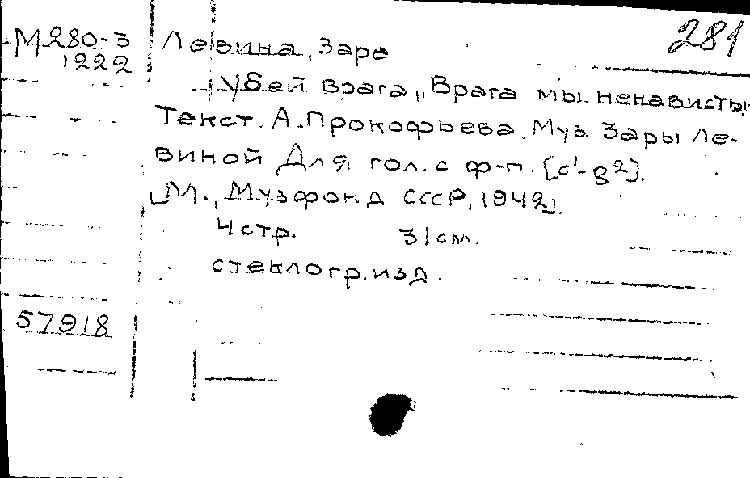 281
М280-3 Левина, Заре
1222
Убей врага, „Врага мы ненависты
Текст. А. Прокофьева. Муз. Зары Ле-
виной Для гол. с ф-п. [c¹-g²].
[М., Музфонд СССР, 1942].
4 стр. 31 см.
стеклогр. изд.
57918